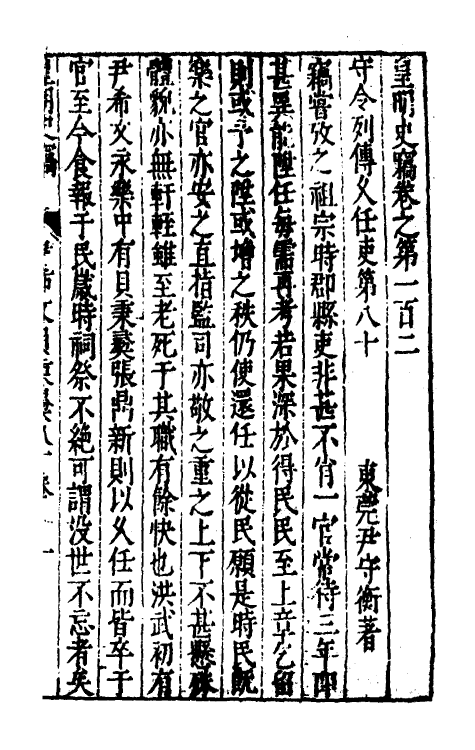 皇明史竊卷之第一百二
守令列傳久任吏第八十　東莞尹守衡著
竊嘗攷之祖宗時郡縣吏非甚不肖一官常待三年即
甚異能陞任每需再考若果深於得民民至上章乞留
則或予之陞或增之秩仍使還任以從民願是時民旣
樂之官亦安之直指監司亦敬之重之上下不甚懸殊
體貌亦無軒輊雖至老死于其職有餘快也洪武初有
尹希文永樂中有貝秉彝張昺新則以久任而皆卒于
官至今食報于民歲時祠祭不絕可謂没世不忘者矣
皇明史竊
尹希文貝秉彝